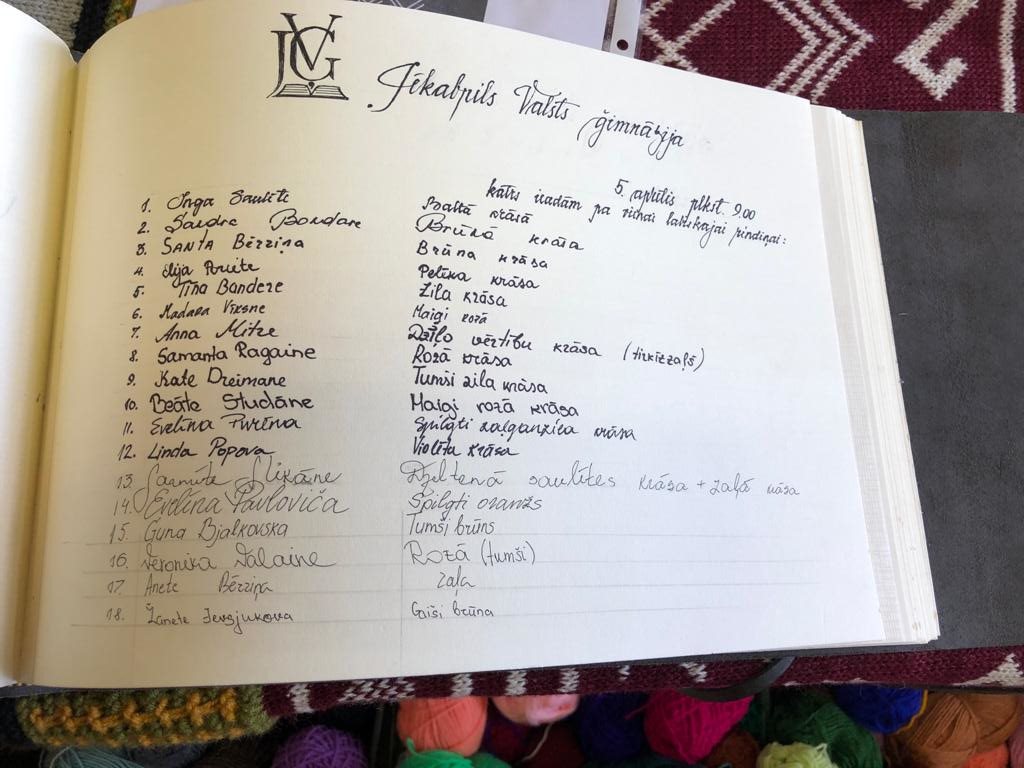 JVG
Jēkabpils Valsts ģimnāzija
5. aprīlis plkst. 9.00
katrs izadām pa vienai latviskajai rindiņai:
1. Inga Saulīte Baltā krāsā
2. Sandra Bondare Brūnā krāsa
3. SANTA Bērziņa Brūna krāsa
4. Elija Pelēka krāsa
5. Tīna Bandere Zila krāsa
6. Madara Vīksne Maigi rozā
7. Anna Mitre Dziļo vērtību krāsa (tirkīzzaļš)
8. Samanta Ragaine Rozā krāsa
9. Kate Dreimane Tumši zila krāsa
10. Beāte Studāne Maigi rozā krāsa
11. Evelīna Purēna Spilgti zaļganzila krāsa
12. Linda Popova Violēta krāsa
13. Sarmīte Slikāne Dzeltenā saulītes krāsa + zaļā krāsa
14. Evelīna Pavloviča Spilgti oranžs
15. Guna Bjalkovska Tumši brūns
16. Veronika Dalaine Rozā (tumši)
17. Anete Bērziņa zaļa
18. Žanete Jevsjukova Gaiši brūna